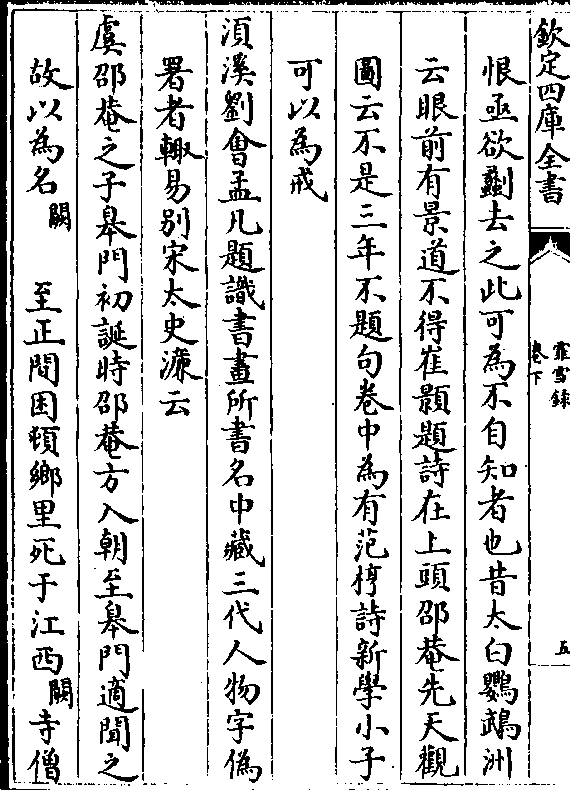 欽定四庫全書
霏雪錄
卷下
五
恨亟欲劙去之此可為不自知者也昔太白鸚鵡洲
云眼前有景道不得崔顥題詩在上頭邵菴先天觀
圖云不是三年不題句卷中為有范梈詩新學小子
可以為戒
湏溪劉會孟凡題識書畫所書名中藏三代人物字偽
署者輙易別宋太史濂云
虞邵菴之子皋門初誕時邵菴方入朝至皋門適聞之
故以為名闕　至正間困頓鄉里死于江西闕寺僧